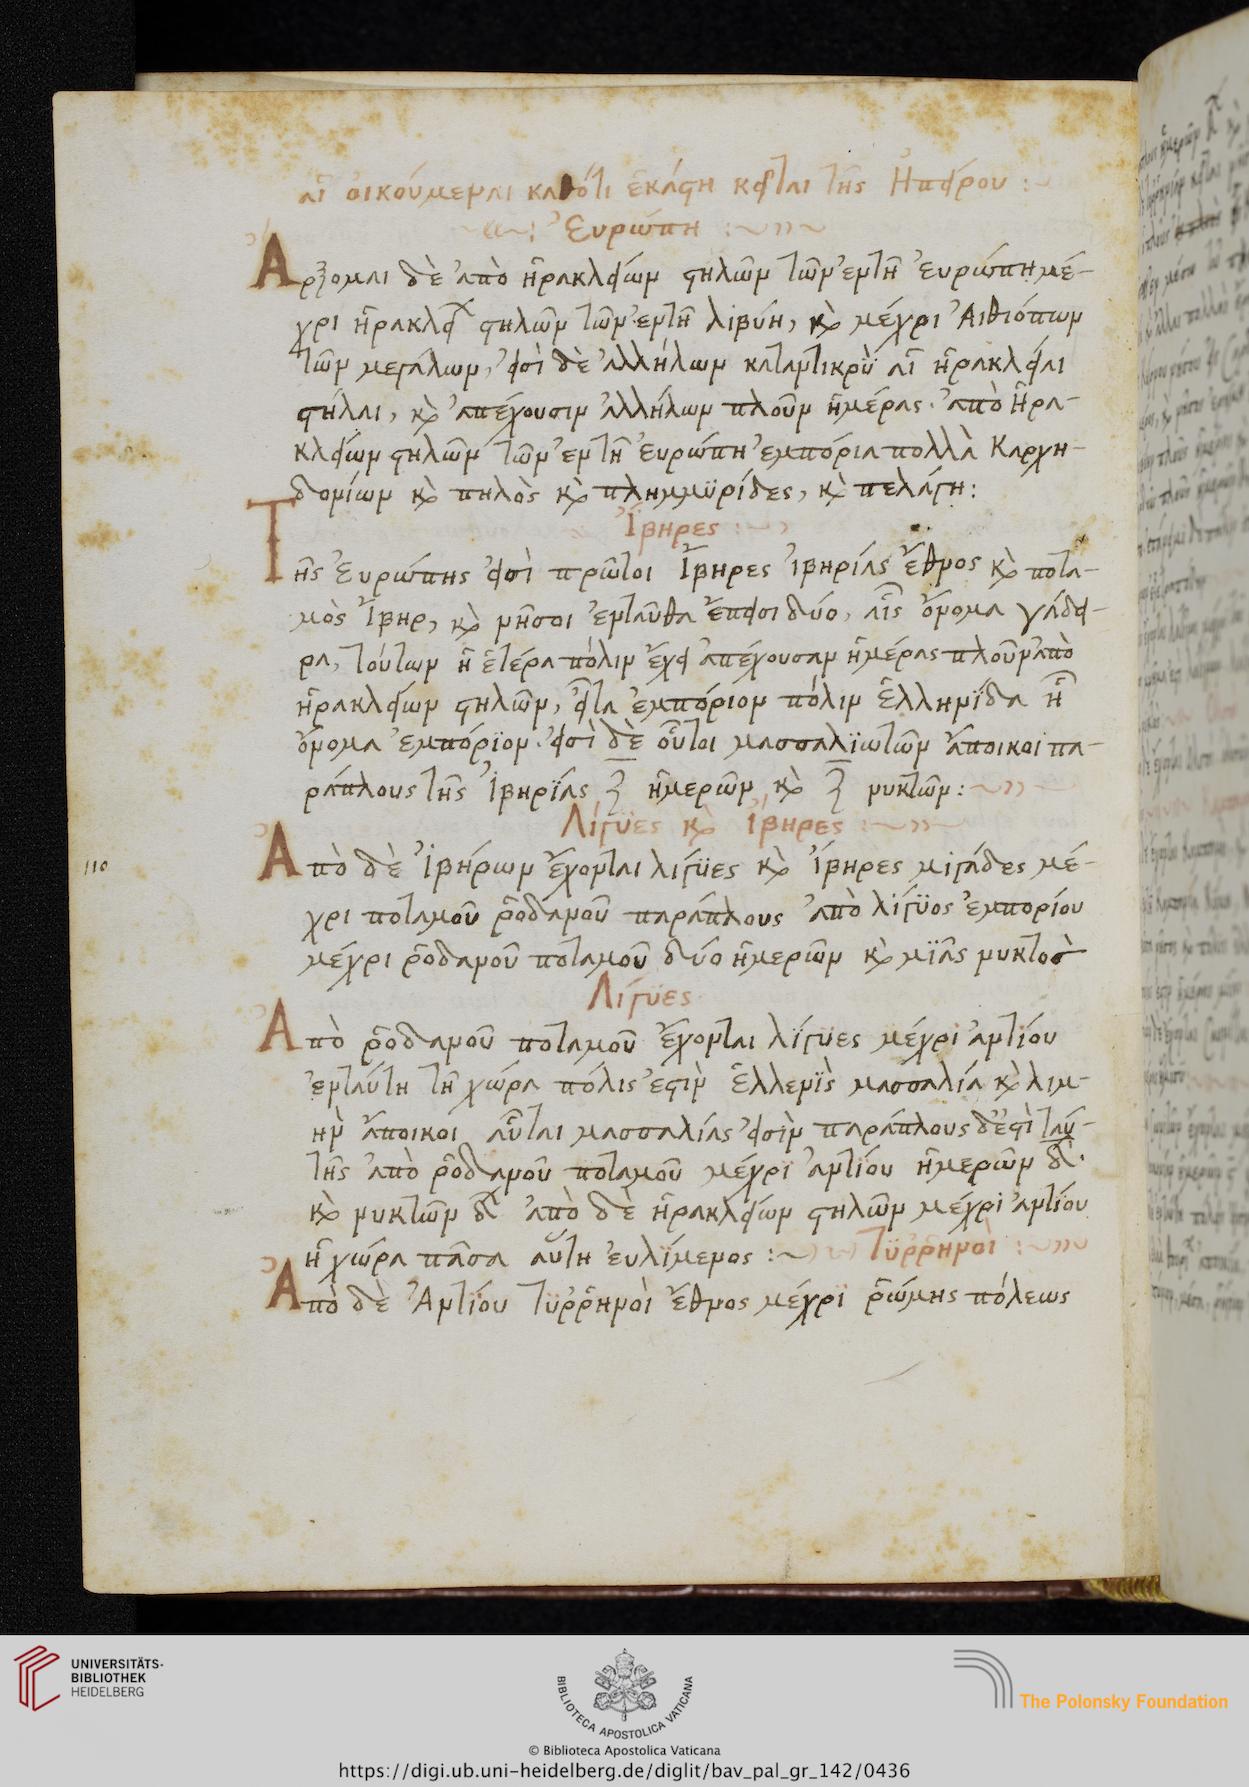 αἱ οἰκούμεναι καθότι ἑκάστη κεῖται τῆς Ἠπείρου :
Ἐυρώπη :
Ἄρξομαι δὲ ἀπὸ ἡρακλείων στηλῶν τῶν ἐν τῆ ἐυρώπη μέ-
χρι ἡρακλεί στηλῶν τῶν ἐν τῆ λιβύη, κὶ μέχρι Ἀιθιόπων
τῶν μεγάλων, ἐισὶ δὲ ἀλλήλων καταντικρὺ αἱ ἡρακλείαι
στήλαι, κὶ ἀπέχουσιν ἀλλήλων πλοῦν ἡμέρας. ἀπὸ Ἡρα-
κλείων στηλῶν τῶν ἐν τῆ ἐυρώπη ἐμπόρια πολλὰ Καρχη-
δονίων κὶ πηλὸς κὶ πλημμϋρίδες, κὶ πελάγη :
Ἴβηρες :
Τῆς ἐυρώπης ἐισὶ πρῶτοι Ἴβηρες ἰβηρίας ἔθνος κὶ ποτα-
μὸς Ἴβηρ, κὶ νῆσοι ἐνταῦθα ἔπεισι δύο, αἷς ὄνομα γάδει-
ρα, τούτων ἡ ἑτέρα πόλιν ἔχει ἀπέχουσαν ἡμέρας πλοῦν ἀπὸ
ἡρακλείων στηλῶν, εἶτα ἐμπόριον πόλιν ἑλληνίδα ἧ
ὄνομα ἐμπόρϊον. ἐισὶ δὲ οὗτοι μασσαλϊωτῶν ἄποικοι πα-
ράπλους τῆς Ἰβηρϊας ζ̄ ἡμερῶν κὶ ζ̄ νυκτῶν :
Λίγϋες κὶ Ἴβηρες :
Ἀπὸ δὲ Ἰβήρων ἔχονται λιγϋες κὶ ἴβηρες μιγάδες μέ-
χρι ποταμοῦ ῥοδανοῦ παράπλους ἀπὸ λϊγϋος ἐμπορίου
μέχρι ῥοδανοῦ ποταμοῦ δύο ἡμερῶν κὶ μϊᾶς νυκτοσ
Λίγϋες
Ἀπὸ ῥοδανοῦ ποταμοῦ ἔχονται λϊγϋες μέχρι ἀντίου
ἐνταύτη τῆ χώρα πόλις ἐστὶν ἑλλενϊς μασσαλία κὶ λιμ-
ὴν ἄποικοι αὗται μασσαλίας ἐισὶν παράπλους δ' ἐστὶ ταύ-
της ἀπὸ ῥοδανοῦ ποταμοῦ μέχρϊ ἀντίου ἡμερῶν δ.
κὶ νυκτῶν δ ἀπὸ δὲ ἡρακλείων στηλῶν μέχρϊ ἀντίου
ἡ χώρα πᾶσα αὕτη ἐυλίμενος :~ Τϋρῥηνοὶ :
Ἀπὸ δὲ Ἀντϊου Τϋρῥηνοὶ ἔθνος μέχρϊ ῥώμης πόλεως
110
UNIVERSITÄTS-
BIBLIOTHEK
HEIDELBERG
BIBLIOTECA APOSTOLICA VATICANA
The Polonsky Foundation
© Biblioteca Apostolica Vaticana
https://digi.ub.uni-heidelberg.de/diglit/bav_pal_gr_142/0436